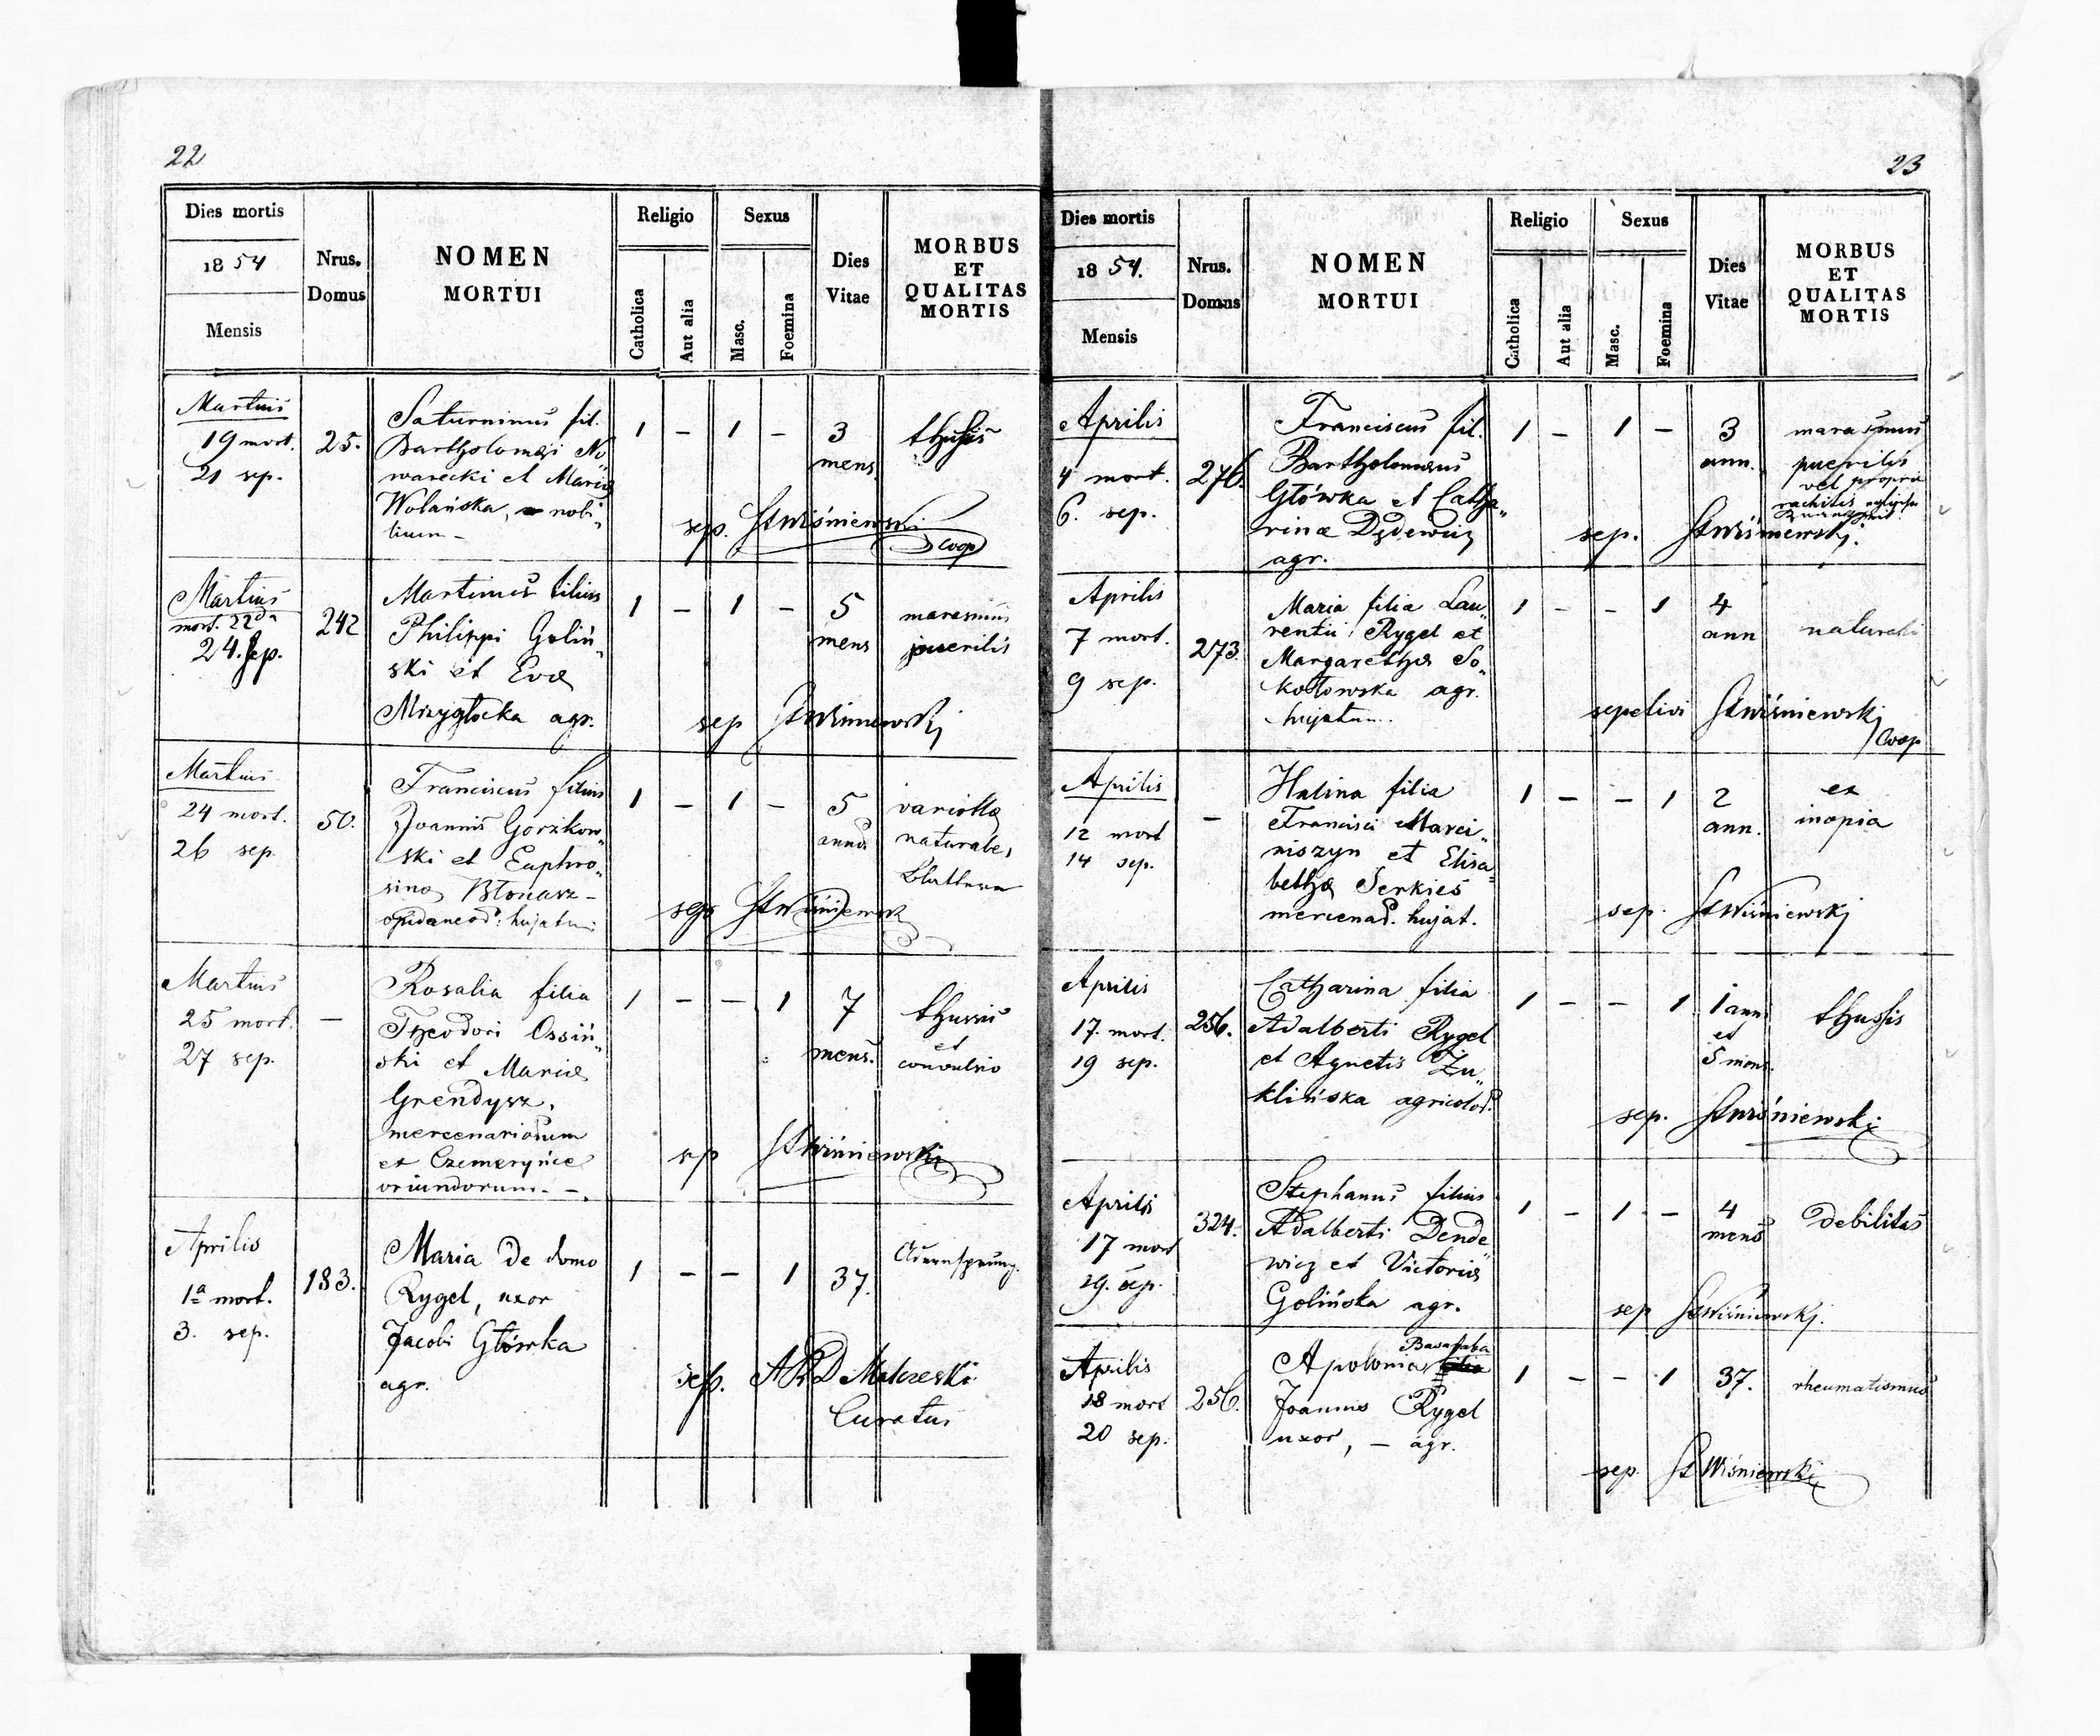 22
Dies mortis
1854
Mensis
Nrus.
Domus
NOMEN
MORTUI
Religio
Catholica
Aut alia
Sexus
Masc.
Foemina
Dies
Vitae
MORBUS
ET
QUALITAS
MORTIS
Martius
19 mort.
21 sep.
25.
Saturninus fil.
Bartholomæi No„
warecki et Mariæ
Wolańska, nobi„
lium –
1 – 1 –
3
mens
thussis
sep. StWiśniewski
Coop
Martius
mort. 22da
24. Sep.
242
Martinus filius
Philippi Goliń„
ski et Evæ
Mrzygłocka agr.
1 – 1 –
5
mens
marasmus
puerilis
sep StWiśniewski
Martius
24 mort.
26 sep.
50.
Franciscus filius
Joannis Gorzkow„
ski et Euphro„
sina Błonarz –
1 – 1 –
5
variollæ
naturales
Blattern
sep StWiśniewski
Martius
25 mort.
27 sep.
–
Rosalia filia
Theodori Ossiń„
ski et Mariæ
Grendysz,
mercenariorum
ex Czemeryńce
oriundorum. –.
1 – – 1
7
mens.
thussis
et
convulsio
sep StWiśniewski
Aprilis
1a mort.
3. sep.
183.
Maria de domo
Rygel, uxor
Jacobi Główka
agr.
1 – – 1
37.
sep.
Curatus
23
Dies mortis
1854.
Mensis
Nrus.
Domus
NOMEN
MORTUI
Religio
Catholica
Aut alia
Sexus
Masc.
Foemina
Dies
Vitae
MORBUS
ET
QUALITAS
MORTIS
Aprilis
4 mort.
6. sep.
276.
Franciscus fil.
Bartholomæus
Główka et Catha„
rinæ Dędewicz
agr.
1 – 1 –
3
ann.
marasmus
puerilis
vel propria
rachitis
sep. StWiśniewski.
Aprilis
7 mort.
9 sep.
273
Maria filia Lau„
rentii Rygel et
Margarethæ So„
kołowska agr.
hujatum.
1 – – 1
4
ann
naturali
sepelivi StWiśniewski
Coop
Aprilis
12 mort
14 sep.
–
Halina filia
Francisci Marci„
niszyn et Elisa„
bethæ Serkies
mercenad. hujat.
1 – – 1
2
ann.
ex
inopia
sep. StWiśniewski
Aprilis
17. mort.
19 sep.
256.
Catharina filia
Adalberti Rygel
et Agnetis Żu„
klińska agricolar.
1 – – 1
1 ann
et
5 mens.
thussis
sep. StWiśniewski
Aprilis
17 mort
19. sep.
324.
Stephanus filius
Adalberti Dende„
wicz et Victoriæ
Golińska agr.
1 – 1 –
4
mens
debilitas
sep StWiśniewski.
Aprilis
18 mort
20 sep.
256.
Barataba
Apolonia filia
Joannis Rygel
uxor, – agr.
1 – – 1
37.
rheumatismus
sep. StWiśniewski